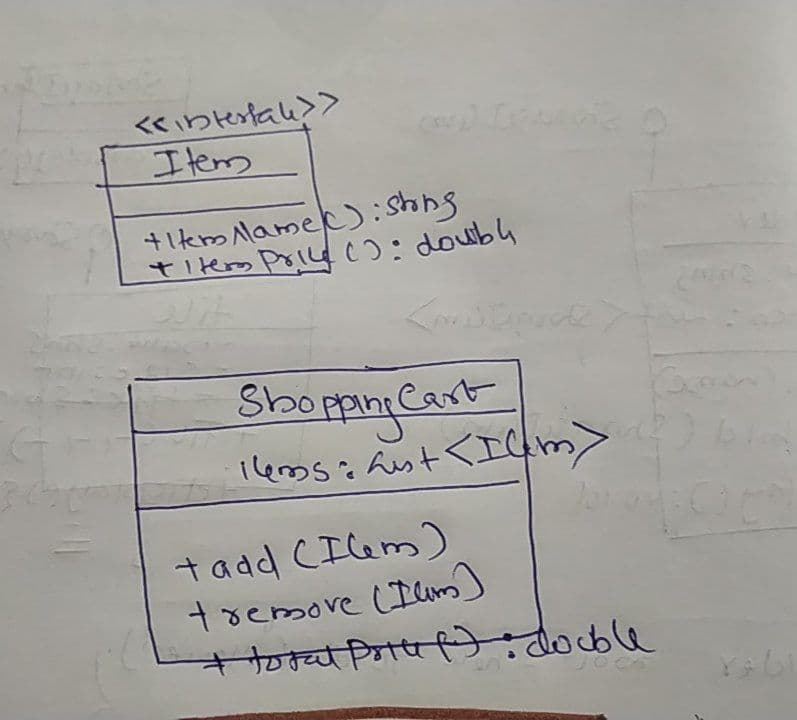 <<interface>>
Item
+ItemName():string
+ItemPrice():double
ShoppingCart
items: List<Item>
+add(Item)
+remove(Item)
+total Price():double